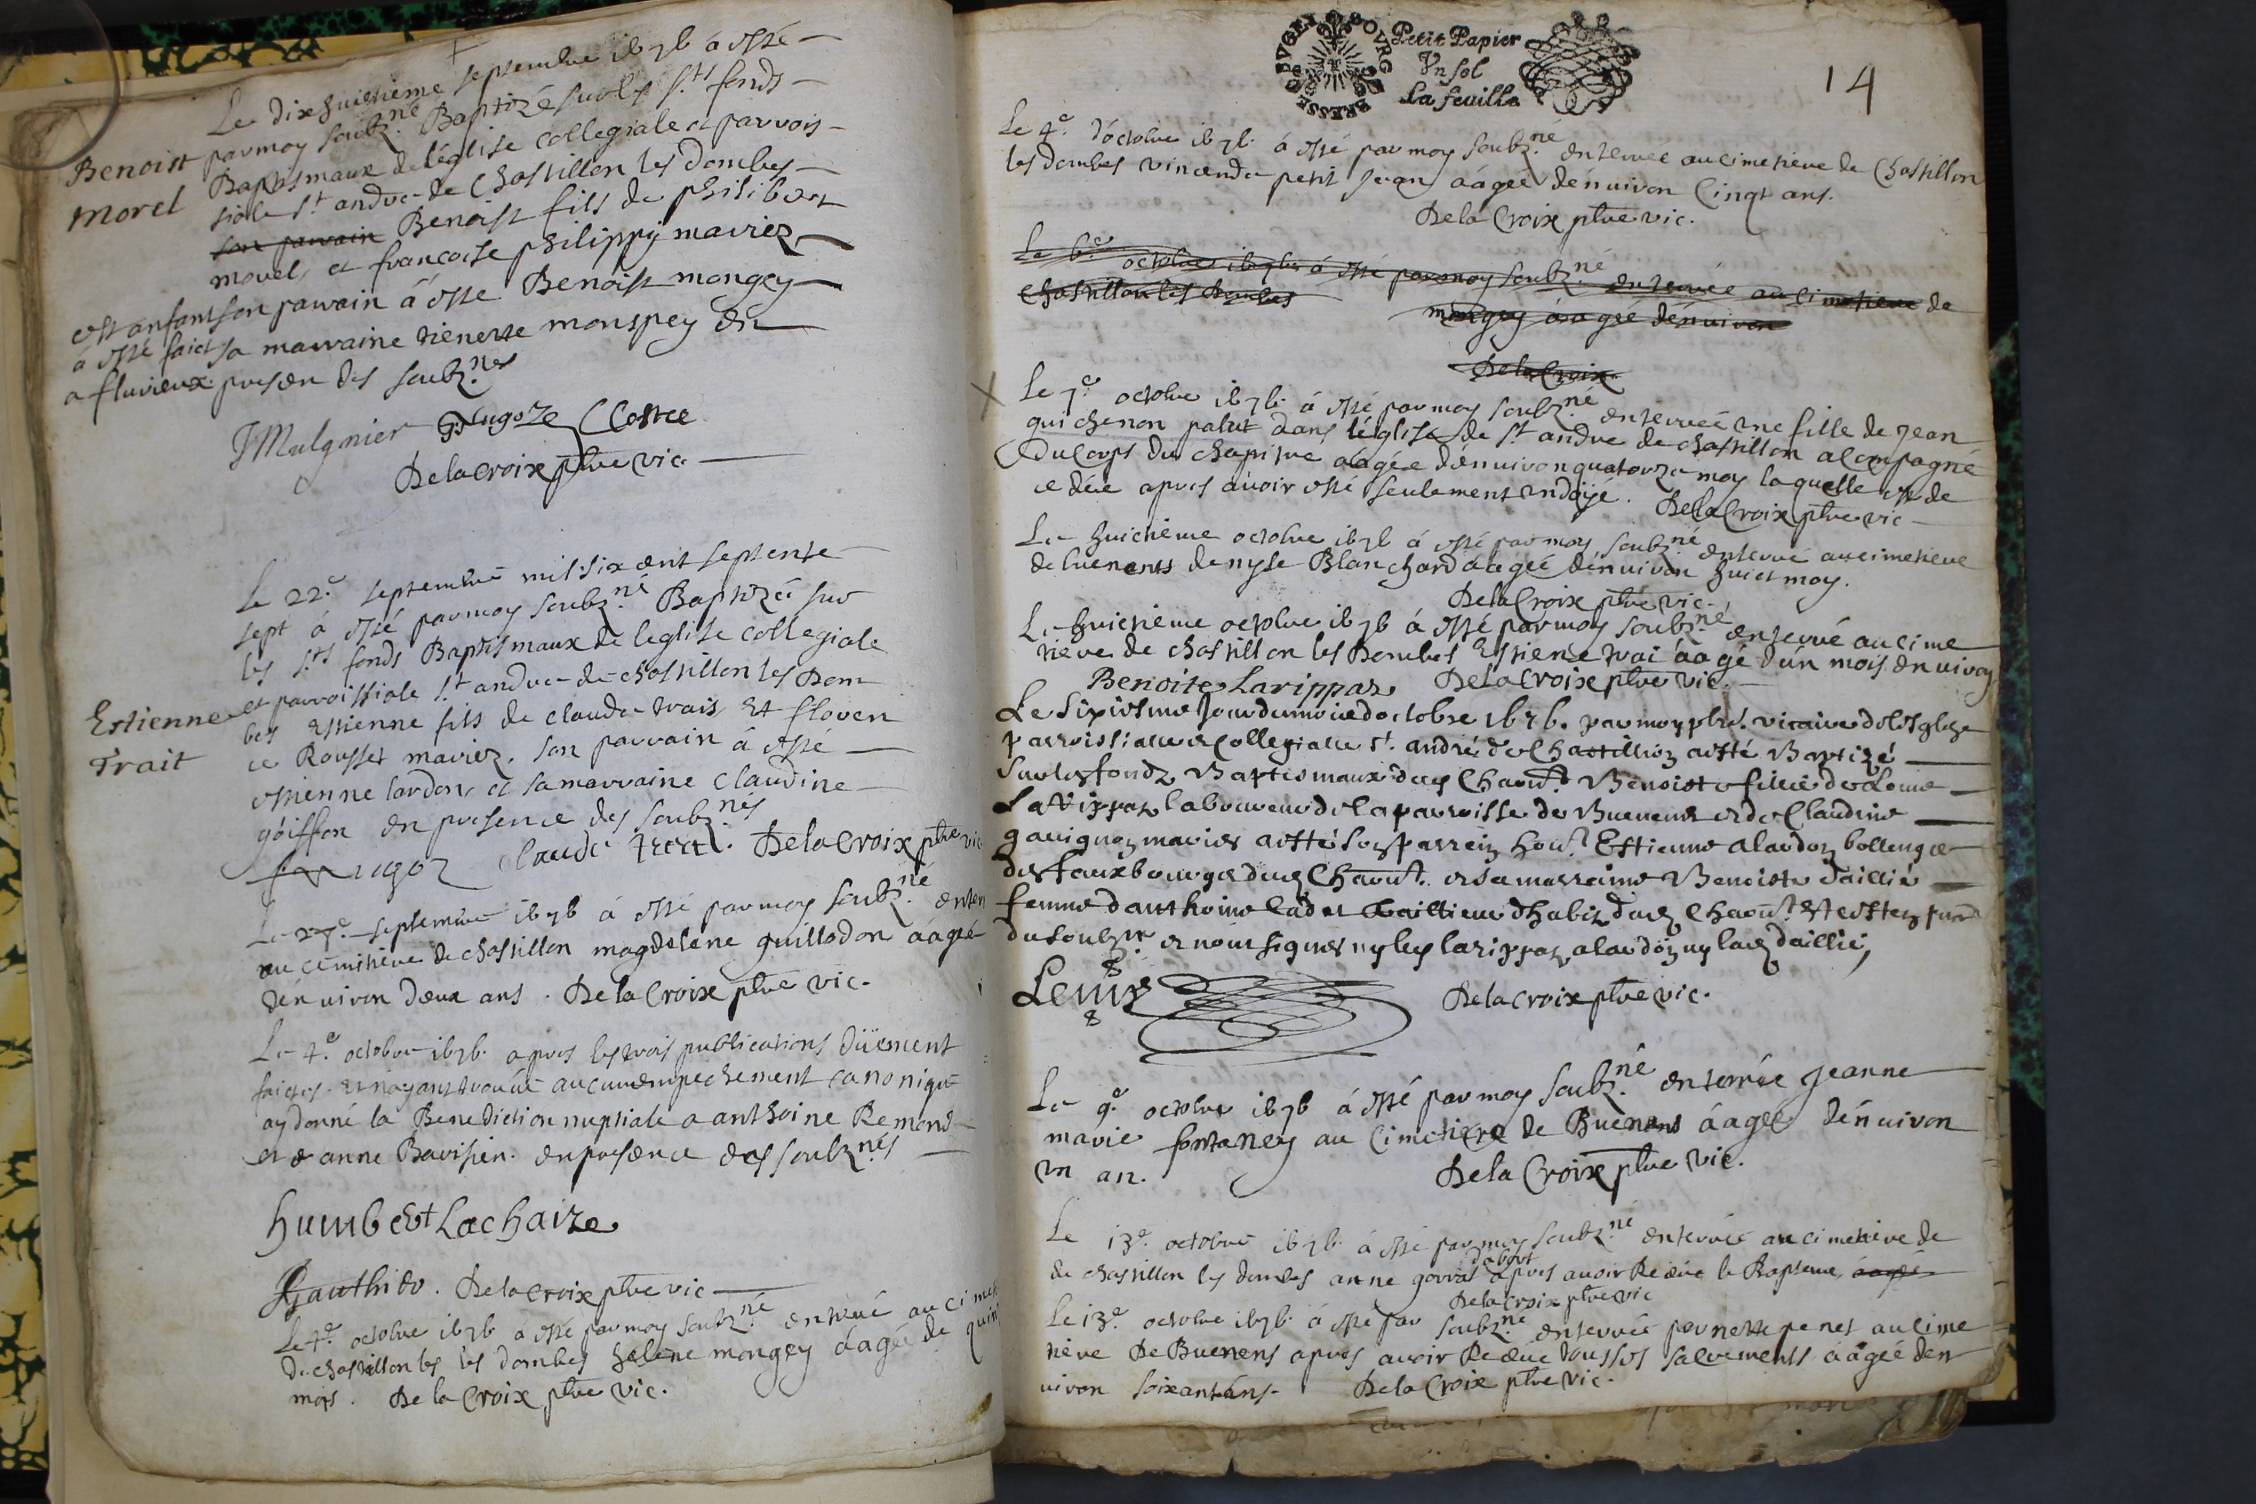 Le dixhuictieme septembre 1676 a esté
par moy soubz.né Baptizé sur les s.ts fonds
Benoist
Morel
Baptismaux de l'église collegiale et parrois-
siale s.t andre de Chastillon les dombes
son parrain Benoist fils de philibert
morel et francoise philippy mariez
cest anfant son parrain a este Benoist mongey
a esté faict sa marraine tienette monspey en
a fluvieux presen des soubz.nes
JMulgnier Hugoze CCostce
Delacroix pbre vic.
Le 22.e septembre mil six cent septente
sept a esté par moy soubz.né Baptizé sur
les s.ts fonds Baptismaux de leglise collegiale
et parroissiale s.t andre de chastillon les Dom
Estienne
Trait
bes estienne fils de claude trais et floren
ce Rousset mariez. son parrain a esté
estienne lardon, et sa marraine claudine
goiffon en presence des soubz.nés
claude trest. Delacroix pbre vic
Le 27.e septembre 1676 a esté par moy soubz.né enterr
au cemitière de chastillon magdelene guillodon aagée
d'environ deux ans. De la Croix pbre vic.
Le 4.e octobre 1676. apres les trois publications düement
faictes. et n'ayant trouué aucun empechement canonique
ay donné la Benediction nuptiale a anthoine Remond
et a anne Bavisien. en presence des soubz.nés
humbert Lachaize
Gauthier. De la croix pbre vic
Le 4.e octobre 1676 a esté par moy soubz.né enterré au cime
de chastillon les les dombes helene mongey aagée de quin
mois. De la Croix pbre vic.
BRESSE BVGEY BOVRG
Petit Papier
Vn sol
La feuille
14
Le 4.e d'octobre 1676. a esté par moy soubz.né enterrée au cimetiere de Chastillon
les dombes vincende petit jean aagée d'environ Cinqt ans.
De la Croix pbre vic.
Le 6.e octobre 1676 a esté par moy soubz.né enterrée au cimetiere de
Chastillon les dombes mongey aagé denviron
De la Croix
Le 7.e octobre 1676. a esté par moy soubz.né enterreé une fille de jean
quichenon palut dans l'église de s.t andre de chastillon acompagné
du Corps du chapitre aagée d'environ quatorze moy laquelle est de
cedée apres auoir esté seulement ondoyé. De la Croix pbre vic
Le huictieme octobre 1676 a esté par moy soubz.né enterré au cimetiere
de buenens denyse Blanchard aagée d'environ huict moy.
De la Croix pbre vic.
Le huictieme octobre 1676 a esté par moy soubz.né enterré au cime
tiere de chastillon les Dombes Estiene trai aagé d'ún mois environ
Benoite Larippaz De la Croix pbre vic.
Le sixiesme Jour du mois doctobre 1676. par moy pbre. vicaire de lesglize
parroissialle et Collegialle s.t andré de Chastillion a esté Baptizé
sur les fondz Baptismaux dud Chaon.t Benoiste fillie de Louis
Larippaz laboureur de la parroisse de Buenens et de Claudine
gauignon mariés a esté son parrein hon.t Estienne alardon bollenger
des fauxbourgs dud Chaon.t et sa marraine Benoiste daillié
femme danthoine Cadet taillieur dhabitz dud Chaon.t
du soubz.né et nont signes ny led larippaz, alardon ny lad daillié,
Leuis De la croix pbre vic.
Le 9.e octobre 1676 a esté par moy soubz.né enterrée jeanne
marie fontaney au Cimetiere de Buenens aagée d'énviron
vn an. De la Croix pbre vic.
Le 13.e octobre 1676. a esté par moy soubz.né enterrée au cimetiere de
de chastillon les dombes anne gorrat dabort apres auoir Receue le Bapteme, aagée
De la croix pbre vic
Le 13.e octobre 1676. a esté par soubz.né enterrée pernette penet au cime
tiere De Buenens apres auoir Receue tous ses sacrements aagée d'en
viron soixantans. De la Croix pbre vic.